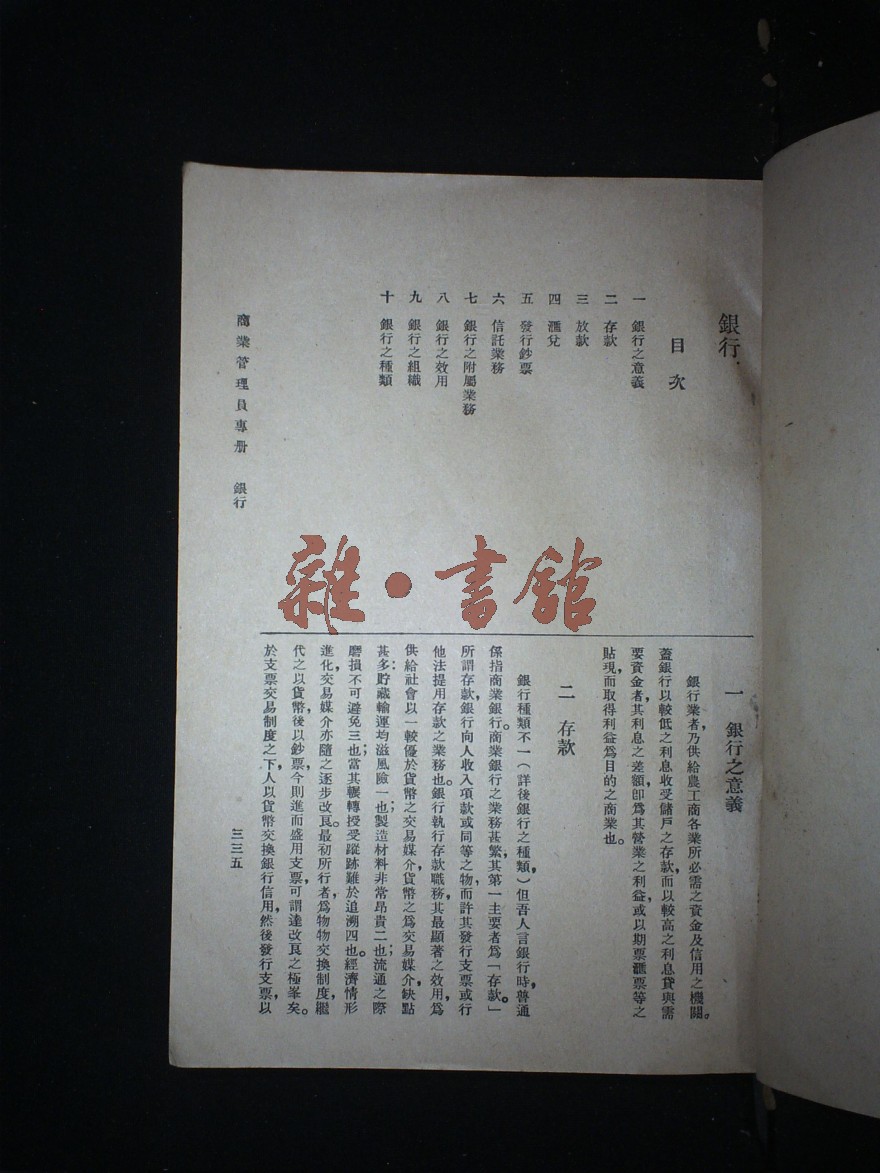 銀行
目次
一 銀行之意義
二 存款
三 放款
四 滙兌
五 發行鈔票
六 信託業務
七 銀行之附屬業務
八 銀行之效用
九 銀行之組織
十 銀行之種類
一 銀行之意義
銀行業者，乃供給農工商各業所必需之資金及信用之機關。
蓋銀行以較低之利息收受儲戶之存款，而以較高之利息貸與需
要資金者，其利息之差額卽爲其營業之利益，或以期票滙票等之
貼現，而取得利益爲目的之商業也。
二 存款
銀行種類不一（詳後銀行之種類，）但吾人言銀行時，普通
係指商業銀行。商業銀行之業務甚繁，其第一主要者爲「存款。」
所謂存款，銀行向人收入項款或同等之物，而許其發行支票或行
他法提用存款之業務也。銀行執行存款職務，其最顯著之效用，爲
供給社會以一較優於貨幣之交易媒介，貨幣之爲交易媒介，缺點
甚多：貯藏輸運均滋風險一也；製造材料非常昂貴二也；流通之際
磨損不可避免三也；當其輾轉授受蹤跡難於追溯四也。經濟情形
進化，交易媒介亦隨之逐步改良。最初所行者，爲物物交換制度，繼
代之以貨幣，後以鈔票，今則進而盛用支票，可謂達改良之極峯矣。
於支票交易制度之下，人以貨幣交換銀行信用，然後發行支票，以
商業管理員專册 銀行
三三五
雜·書館